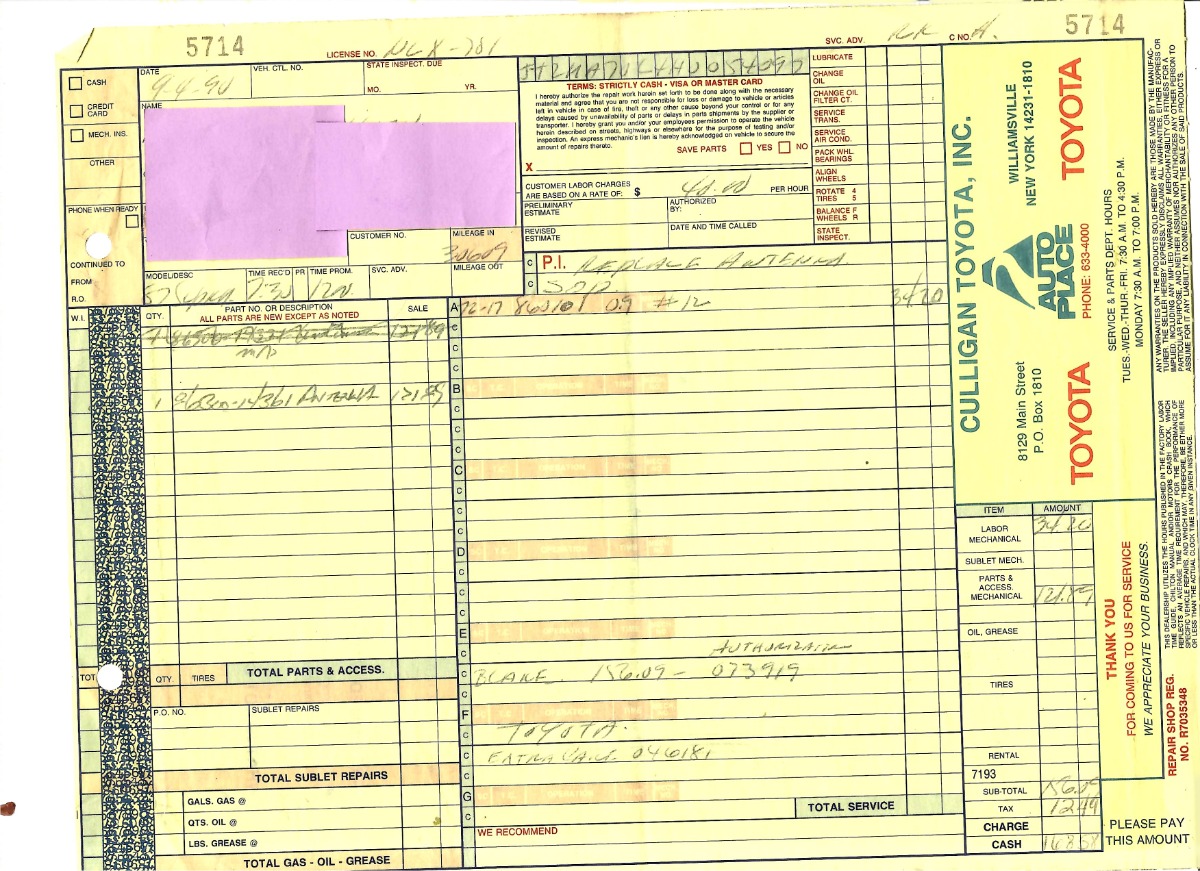 5714
LICENSE NO. NCX-781
SVC. ADV. RR
C NO. A.
5714
CASH
CREDIT CARD
MECH. INS.
OTHER
PHONE WHEN READY
CONTINUED TO
FROM
R.O.
DATE 9-4-90
VEH. CTL. NO.
STATE INSPECT. DUE
MO. YR.
NAME
CUSTOMER NO.
MILEAGE IN
30609
MILEAGE OUT
MODEL/DESC
TIME REC'D 7:30
PR
TIME PROM.
SVC. ADV.
TERMS: STRICTLY CASH - VISA OR MASTER CARD
I hereby authorize the repair work herein set forth to be done along with the necessary
material and agree that you are not responsible for loss or damage to vehicle or articles
left in vehicle in case of fire, theft or any other cause beyond your control or for any
delays caused by unavailability of parts or delays in parts shipments by the supplier or
transporter. I hereby grant you and/or your employees permission to operate the vehicle
herein described on streets, highways or elsewhere for the purpose of testing and/or
inspection. An express mechanic's lien is hereby acknowledged on vehicle to secure the
amount of repairs thereto.
SAVE PARTS YES NO
X
CUSTOMER LABOR CHARGES
ARE BASED ON A RATE OF: $ 40.00 PER HOUR
PRELIMINARY ESTIMATE
AUTHORIZED BY:
REVISED ESTIMATE
DATE AND TIME CALLED
LUBRICATE
CHANGE OIL
CHANGE OIL FILTER CT.
SERVICE TRANS.
SERVICE AIR COND.
PACK WHL. BEARINGS
ALIGN WHEELS
ROTATE 4 TIRES 5
BALANCE F WHEELS R
STATE INSPECT.
C P.I. REPLACE ANTENNA
C SOP.
A 72-17 863101 09 #12 34 20
W.I.
QTY.
PART NO. OR DESCRIPTION
ALL PARTS ARE NEW EXCEPT AS NOTED
SALE
1 ANTENNA 121 89
B
C
D
E
AUTHORIZATION
BLAKE 156.09 - 073919
F
TOYOTA.
046181
G
TOT.
QTY. TIRES
TOTAL PARTS & ACCESS.
P.O. NO.
SUBLET REPAIRS
TOTAL SUBLET REPAIRS
GALS. GAS @
QTS. OIL @
LBS. GREASE @
TOTAL GAS - OIL - GREASE
TOTAL SERVICE
WE RECOMMEND
CULLIGAN TOYOTA, INC.
8129 Main Street
P.O. Box 1810
WILLIAMSVILLE
NEW YORK 14231-1810
AUTO PLACE
PHONE: 633-4000
TOYOTA
TOYOTA
SERVICE & PARTS DEPT. HOURS
TUES.-WED.-THUR.-FRI. 7:30 A.M. TO 4:30 P.M.
MONDAY 7:30 A.M. TO 7:00 P.M.
ANY WARRANTIES ON THE PRODUCTS SOLD HEREBY ARE THOSE MADE BY THE MANUFAC-
TURER. THE SELLER HEREBY EXPRESSLY DISCLAIMS ALL WARRANTIES, EITHER EXPRESS OR
IMPLIED, INCLUDING ANY IMPLIED WARRANTY OF MERCHANTABILITY OR FITNESS FOR A
PARTICULAR PURPOSE, AND NEITHER ASSUMES NOR AUTHORIZES ANY OTHER PERSON TO
ASSUME FOR IT ANY LIABILITY IN CONNECTION WITH THE SALE OF SAID PRODUCTS.
ITEM AMOUNT
LABOR MECHANICAL 34.20
SUBLET MECH.
PARTS & ACCESS. MECHANICAL 121.89
OIL, GREASE
TIRES
RENTAL
7193
SUB-TOTAL 156.09
TAX 12 49
CHARGE
CASH 168.58
PLEASE PAY
THIS AMOUNT
THANK YOU
FOR COMING TO US FOR SERVICE
WE APPRECIATE YOUR BUSINESS.
THIS DEALERSHIP UTILIZES THE HOURS PUBLISHED IN THE FACTORY LABOR
TIME GUIDE, CHILTON MANUAL AND/OR MOTORS CRASH BOOK, WHICH
REFLECTS AN AVERAGE TIME REQUIREMENT FOR THE PERFORMANCE OF
SPECIFIC VEHICLE REPAIRS, AND WHICH MAY, THEREFORE, BE EITHER MORE
OR LESS THAN THE ACTUAL CLOCK TIME IN ANY GIVEN INSTANCE.
REPAIR SHOP REG.
NO. R7035348